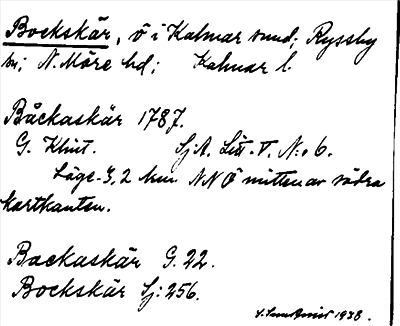 Bockskär, ö i Kalmar sund; Ryssby
sn; N. Möre hd; Kalmar l.
Båckaskär 1787.
G. Klint. Sj. A. Litt. T. N:o 6.
Läge: 3,2 km NNÖ mitten av södra
kartkanten.
Backaskär G. 22.
Bockskär Sj: 256.
1938.